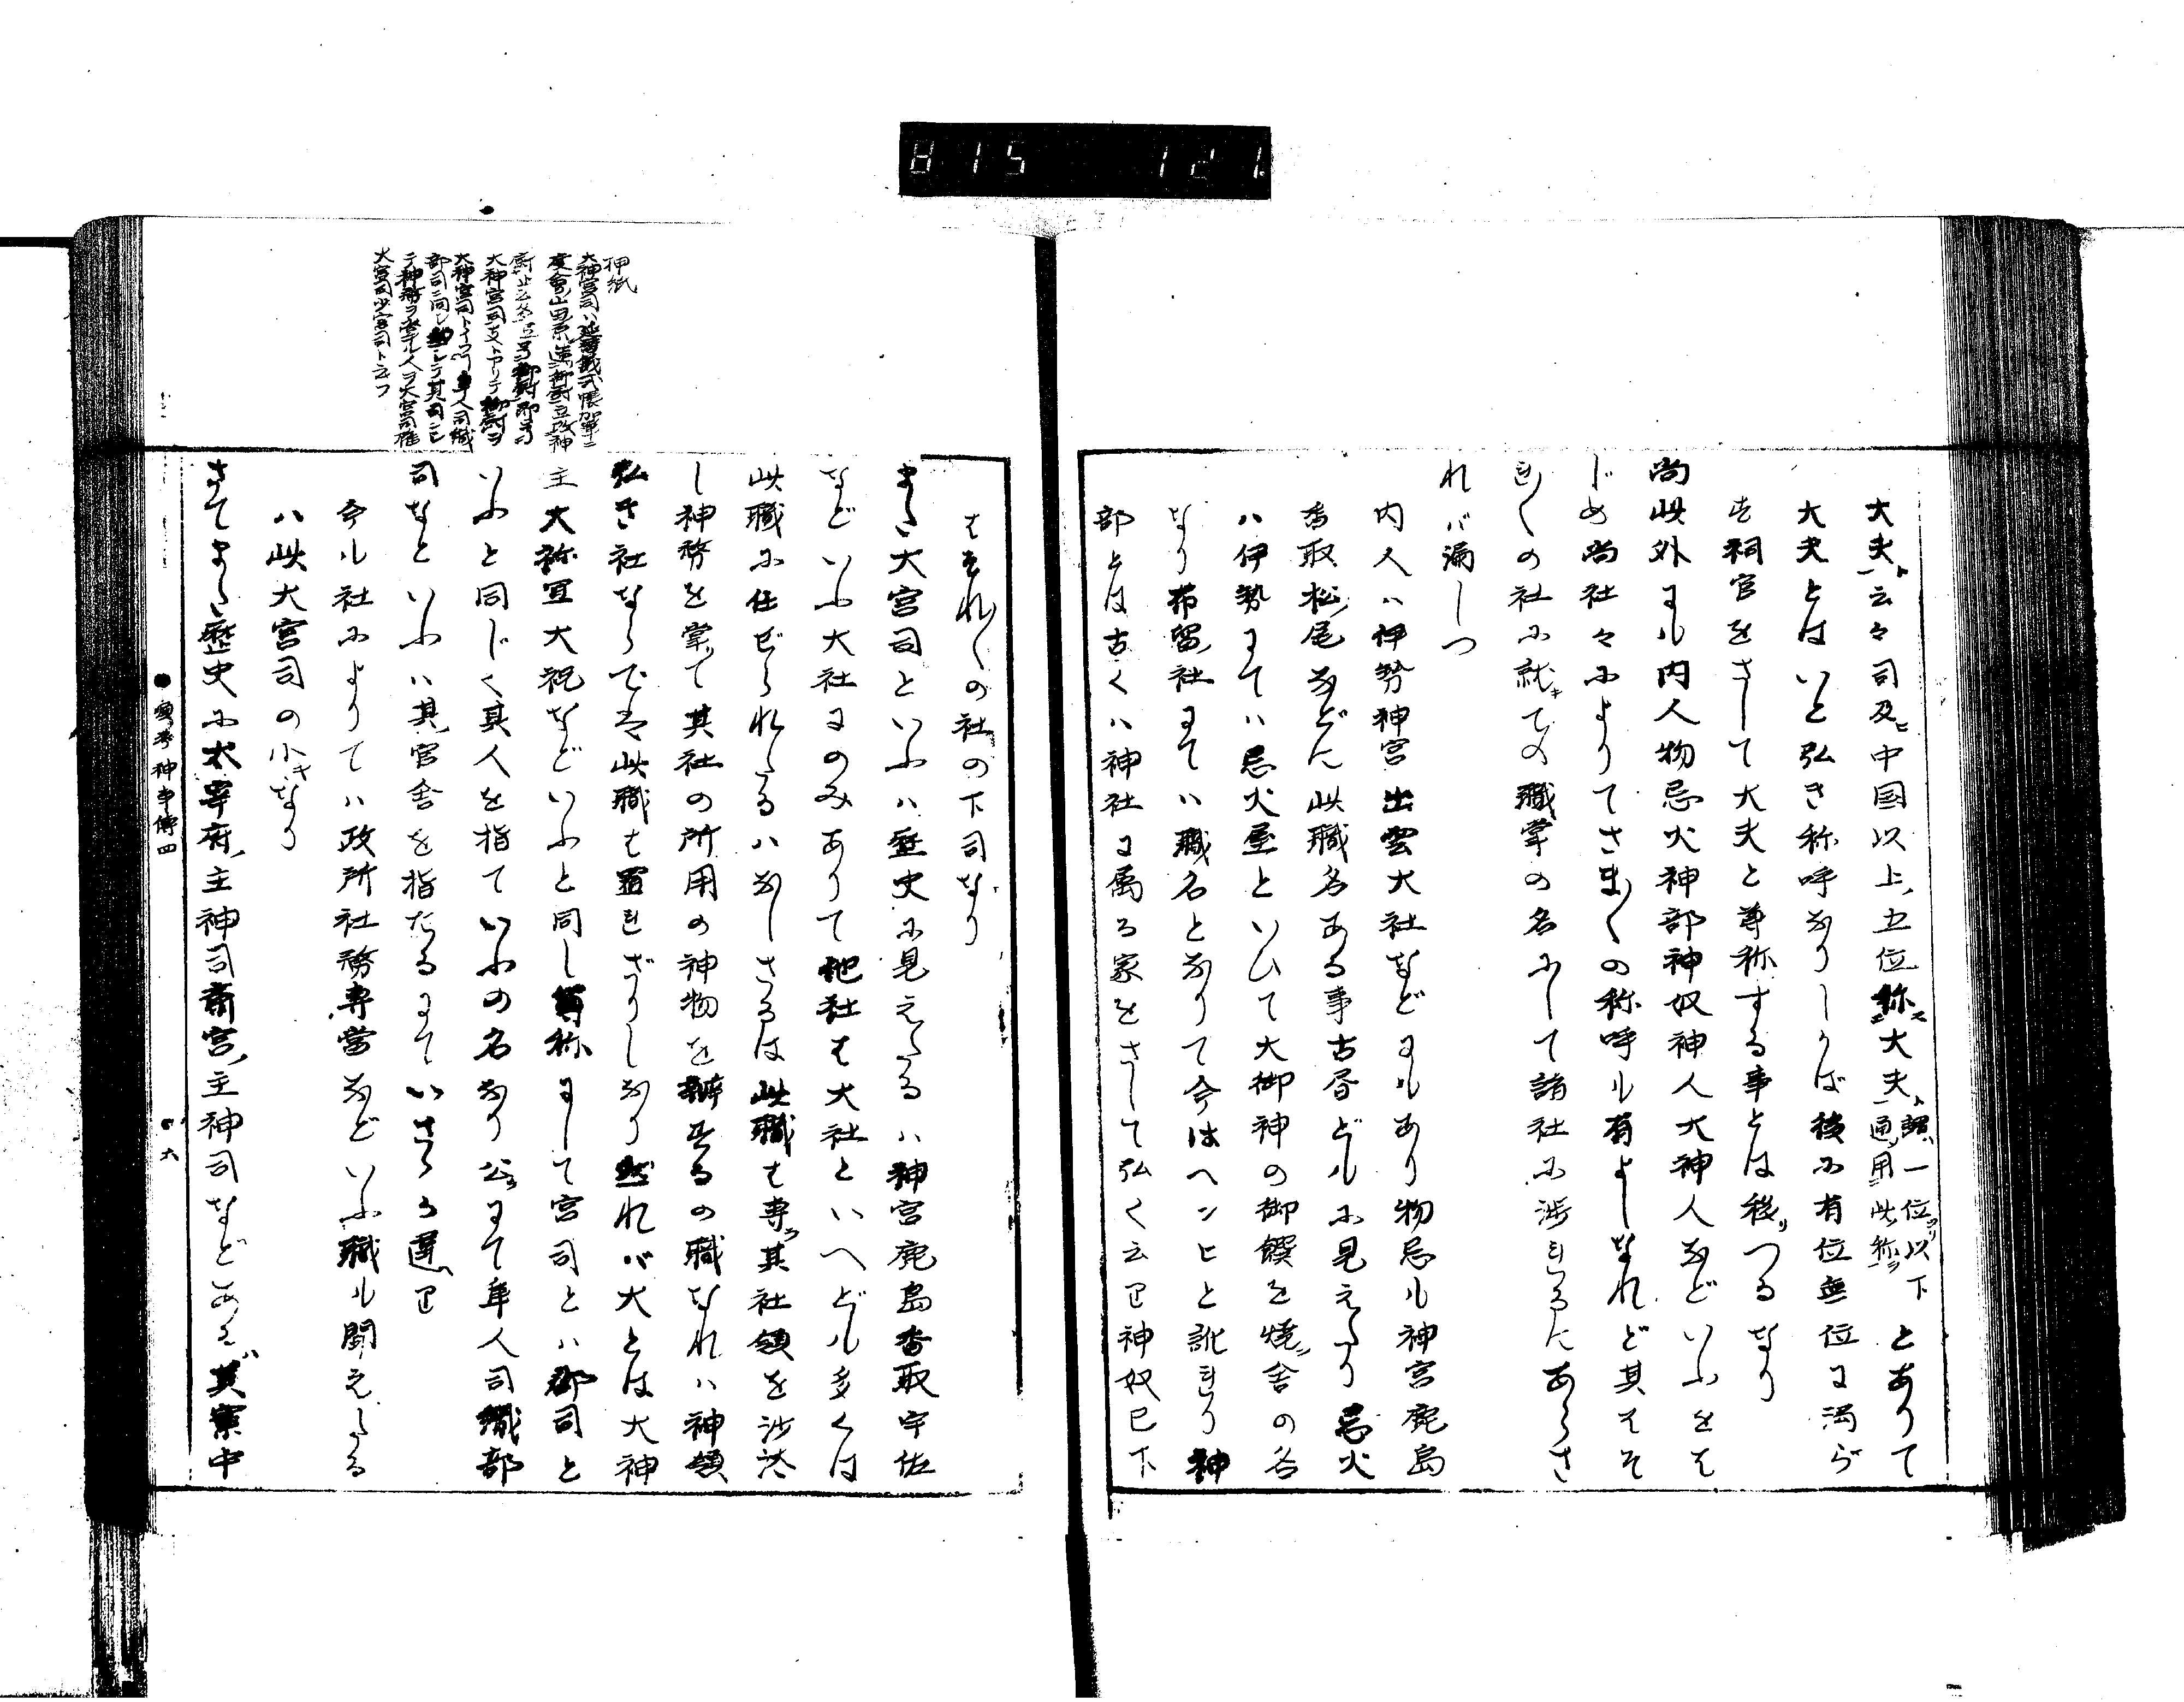 815 121.
大夫ト云々司及ビ中国以上五位称大夫ト
一位以下通用此称ヲとありて
大夫とはいと弘き称呼なりしかば後に有位無位に渦らず
祠官をさして大夫と尊称する事とは後つるなり
尚此外にも内人物忌火神部神奴神人大神人などいふをは
じめ尚社々によりてさま〳〵の称呼も有よしなれど其はそ
れ〳〵の社に就ての職掌の名にして諸社に渉れるにあらざ
れバ漏しつ
内人ハ伊勢神宮出雲大社などにもあり物忌も神宮鹿島
香取松尾などに此職名ある事古昔どもに見えたり忌火
ハ伊勢にてハ忌火屋といひて大御神の御饌を焼舎の名
なり布留社にてハ職名となりて今はヘンヒと訛れり神
部とは古くハ神社に属る家をさして弘く云
神奴已下
はそれ〳〵の社の下司なり
また大宮司といふハ歴史に見えたるハ神宮鹿島香取宇佐
などいふ大社にのみありて他社は大社といへども多くは
此職に任ぜられたるハなしさるは此職は専ラ其社領を沙汰
し神務を掌て其社の所用の神物を弁ずるの職なれハ神領
弘き社ならでは此職は置れざりしなり然れバ大とは大神
主大祢宜大祝などいふと同し尊称にして宮司とハ郡司と
いふと同じく其人を指ていふの名なり公にて隼人司織部
司などいふハ其官舎を指たるにていさゝか違
今も社によりてハ政所社務専当などいふ職も聞えたる
ハ此大宮司の小キなり
さてまた歴史に太宰府主神司斎宮主神司などあるが其寮中
押紙
大神宮司ハ延暦儀式帳
度会山田原造御厨改神
大神宮司
大神宮司トイフハ隼人司織
部司ニ同
テ神務ヲ
人ヲ大宮司権
大宮司少宮司ト云フ
神事傳四
六